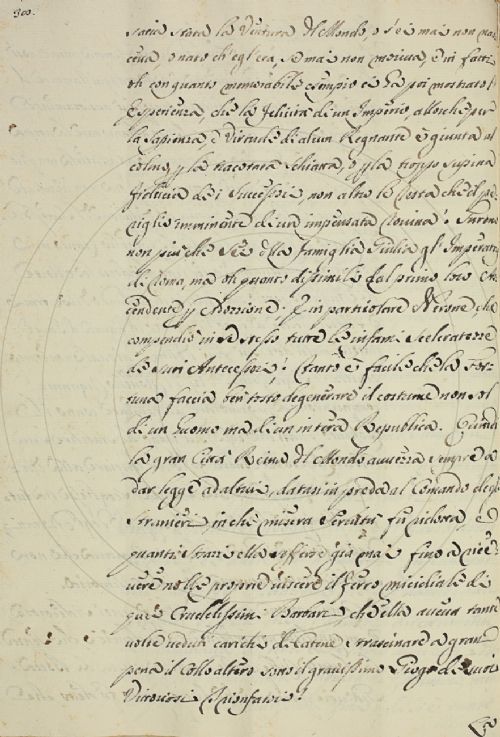 300.
saria stata la Ventura del Mondo, o s'ei mai non na
sceva, o nato ch'egli era, se mai non moriva, e in fatti
oh con quanto memorabile esempio ci ha poi mostrato l'
Esperienza, che la felicità di un Imperio, allorche per
la Sapienza, e Virtude di alcun Regnante è giunta al
colmo, p la tracotata Schiatta, o p la troppo supina
fiducia de i Successori, non altro le Costa che il pe
riglio imminente di una impensata rovina! Furono
non più che Sei della famiglia Giulia gl'Imperati
di Roma, ma oh quanto dissimili dal primo loro As
cendente p Adozzione; E in particolare Nerone che
compendiò in se stesso tutte le infami Sceleratezze
de suoi Antecessori! Tanto è facile che la For
tuna faccia ben tosto degenerare il costume non sol
di un huomo ma di un intera Republica. Quindi
la gran Città Reina del Mondo avvezza sempre a
dar legge ad altrui, datasi in preda al Comando degli
Stranieri in che misera Servitù fu ridotta, e
quanti Strazi ella sofferse già mai fino a rice
vere nelle proprie viscere il ferro micidiale di
que' Crudelissimi Barbari, che ella aveva tante
volte veduti carichi di Catene Strascinare a gran
pena il Collo altero sotto il gravissimo Giogo de suoi
Vittoriosi Trionfatori!